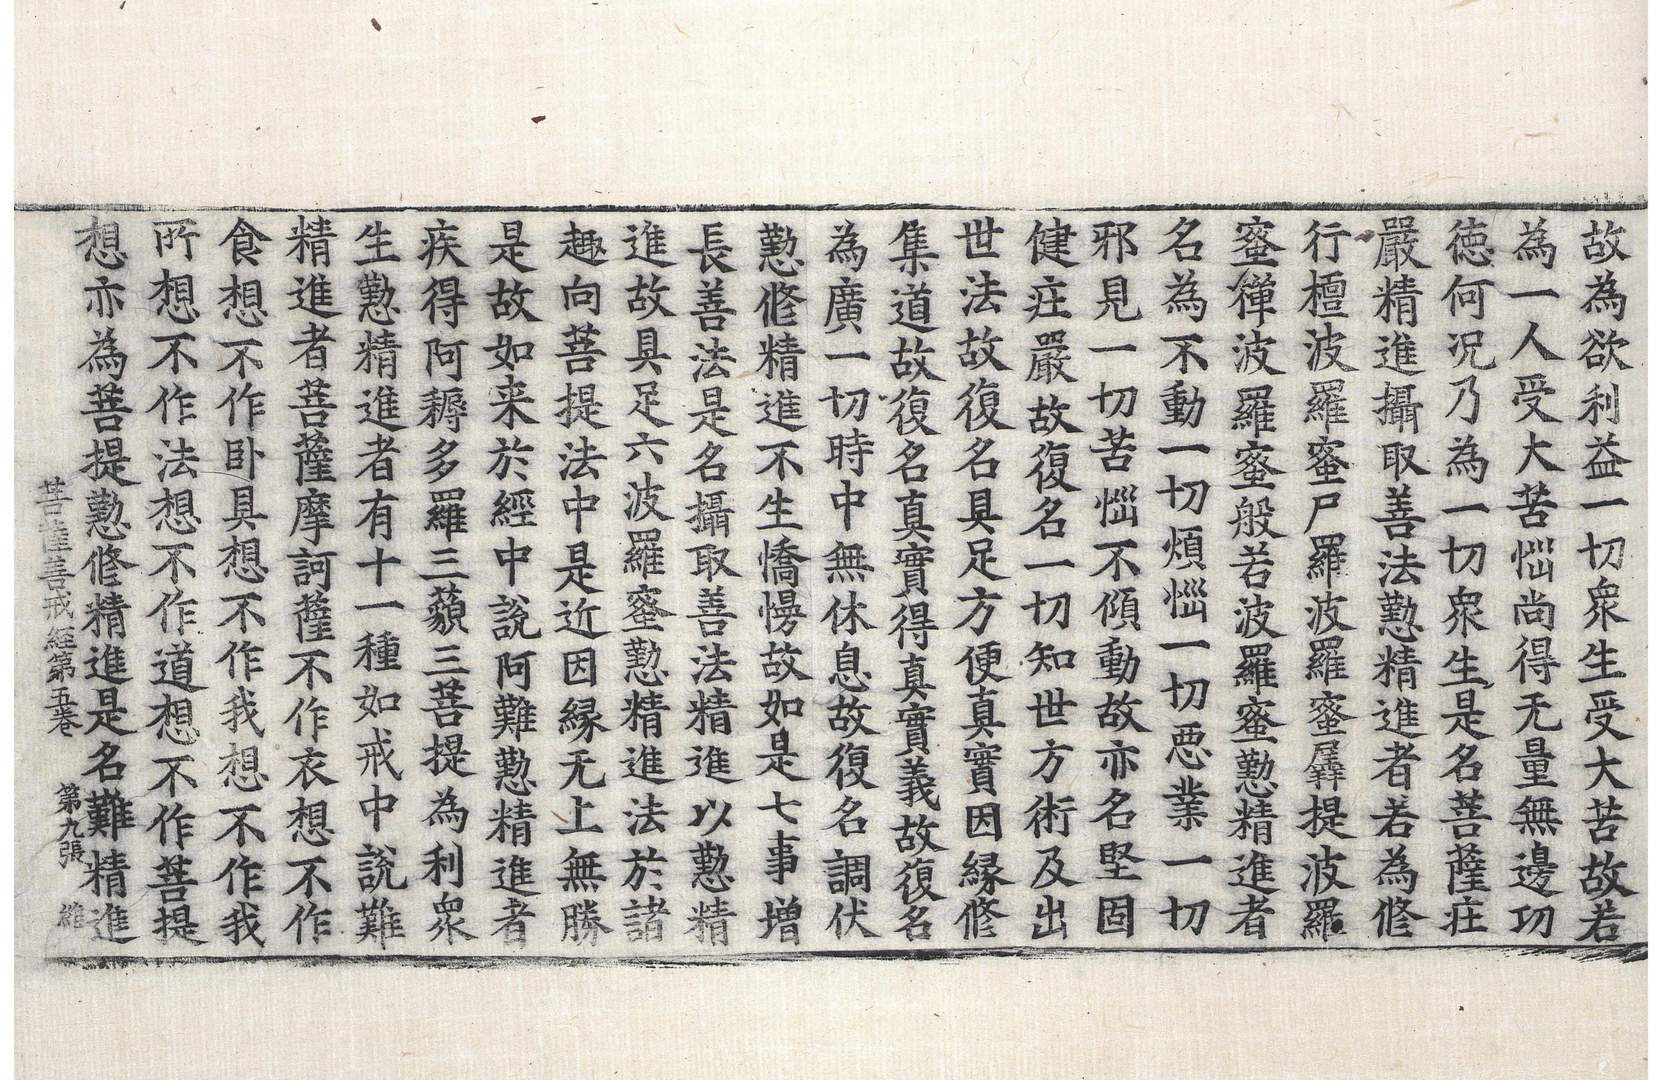 故為欲利益一切衆生受大苦故若
為一人受大苦惱尚得无量無邊功
徳何况乃為一切衆生是名菩薩㽵
嚴精進攝取善法懃精進者若為修
行檀波羅蜜尸羅波羅蜜羼提波羅
蜜禪波羅蜜般若波羅蜜懃精進者
名為不動一切煩惱一切悪業一切
邪見一切苦惱不傾動故亦名堅固
健㽵嚴故復名一切知世方術及出
世法故復名具足方便真實因縁修
集道故復名真實得真實義故復名
為廣一切時中無休息故復名調伏
懃修精進不生憍慢故如是七事増
長善法是名攝取善法精進以懃精
進故具足六波羅蜜懃精進法於諸
趣向菩提法中是近因縁无上無勝
是故如来於經中說阿難懃精進者
疾得阿耨多羅三藐三菩提為利衆
生懃精進者有十一種如戒中說難
精進者菩薩摩訶薩不作衣想不作
食想不作卧具想不作我想不作我
所想不作法想不作道想不作菩提
想亦為菩提懃修精進是名難精進
菩薩善戒經第五卷 第九張 維